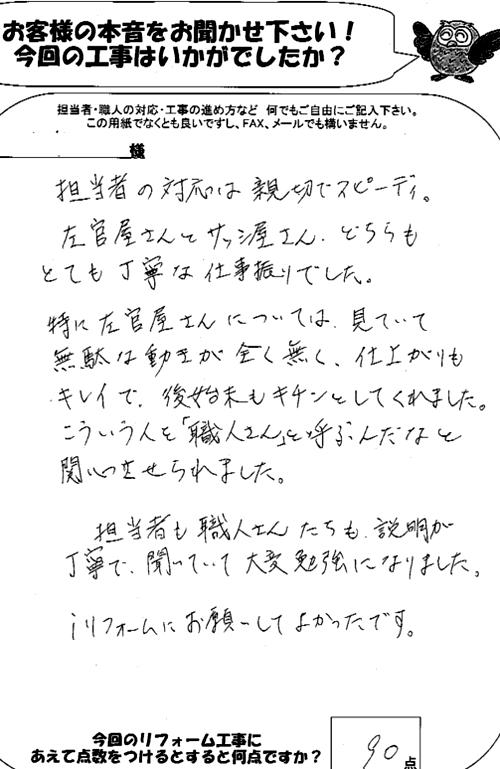 お客様の本音をお聞かせ下さい!
今回の工事はいかがでしたか?
担当者・職人の対応・工事の進め方など 何でもご自由にご記入下さい。
この用紙でなくとも良いですし、FAX、メールでも構いません。
様
担当者の対応は親切でスピーディ。
左官屋さんとサッシ屋さん、どちらも
とても丁寧な仕事振りでした。
特に左官屋さんについては、見ていて
無駄な動きが全く無く、仕上がりも
キレイで、後始末もキチンとしてくれました。
こういう人を「職人さん」と呼ぶんだなと
関心させられました。
担当者も職人さんたちも、説明が
丁寧で、聞いていて大変勉強になりました。
iリフォームにお願いしてよかったです。
今回のリフォーム工事に
あえて点数をつけるとすると何点ですか?
90点